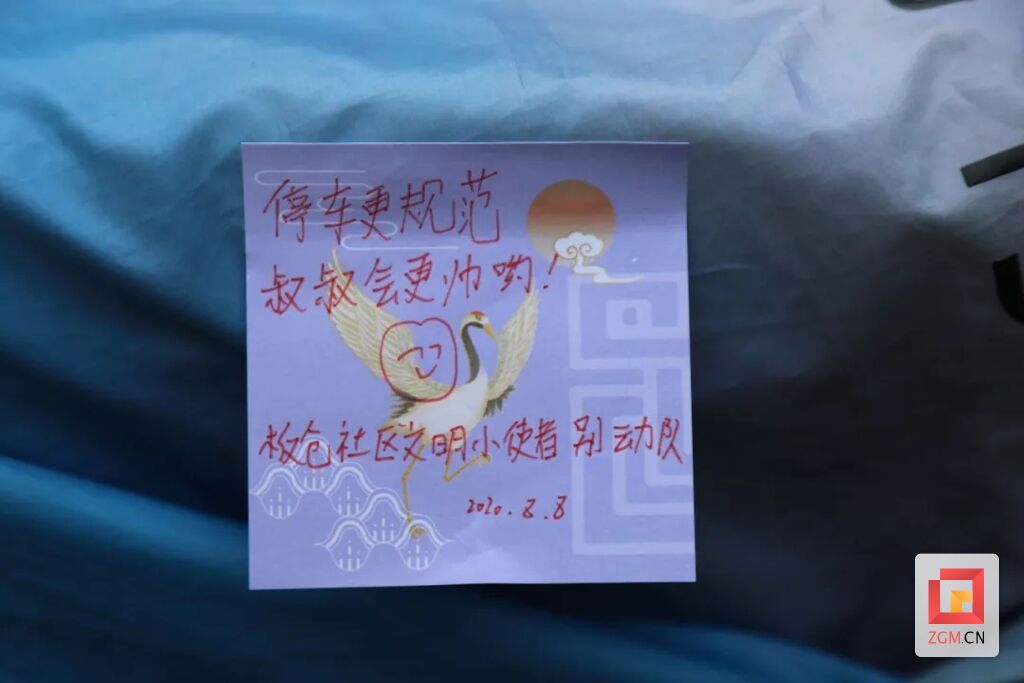 停车更规范
叔叔会更帅哟!
板仓社区文明小使者别动队
2020.8.8
ZGM.CN